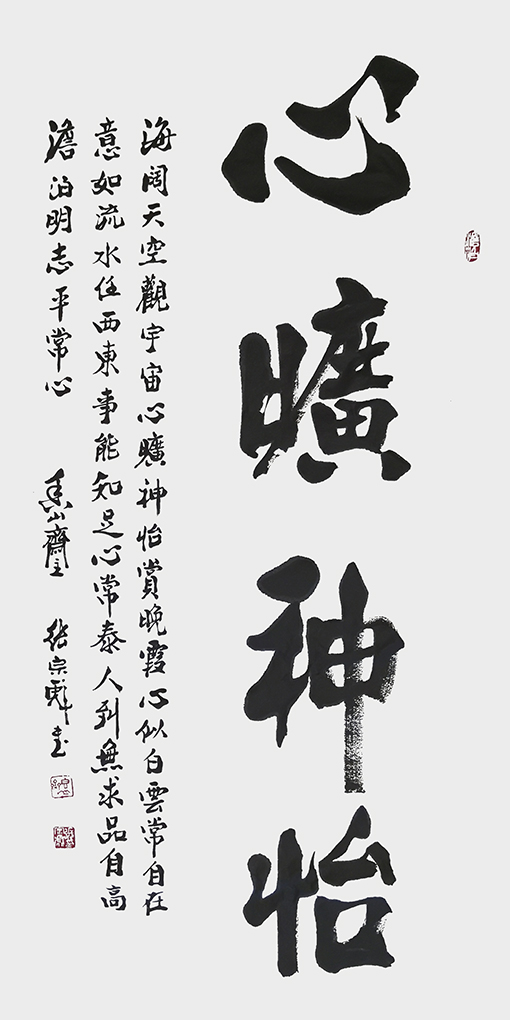 心曠神怡
海闊天空觀宇宙心曠神怡賞晚霞心似白雲常自在
意如流水任西東事能知足心常泰人到無求品自高
澹泊明志平常心
山齋主 張宗 書